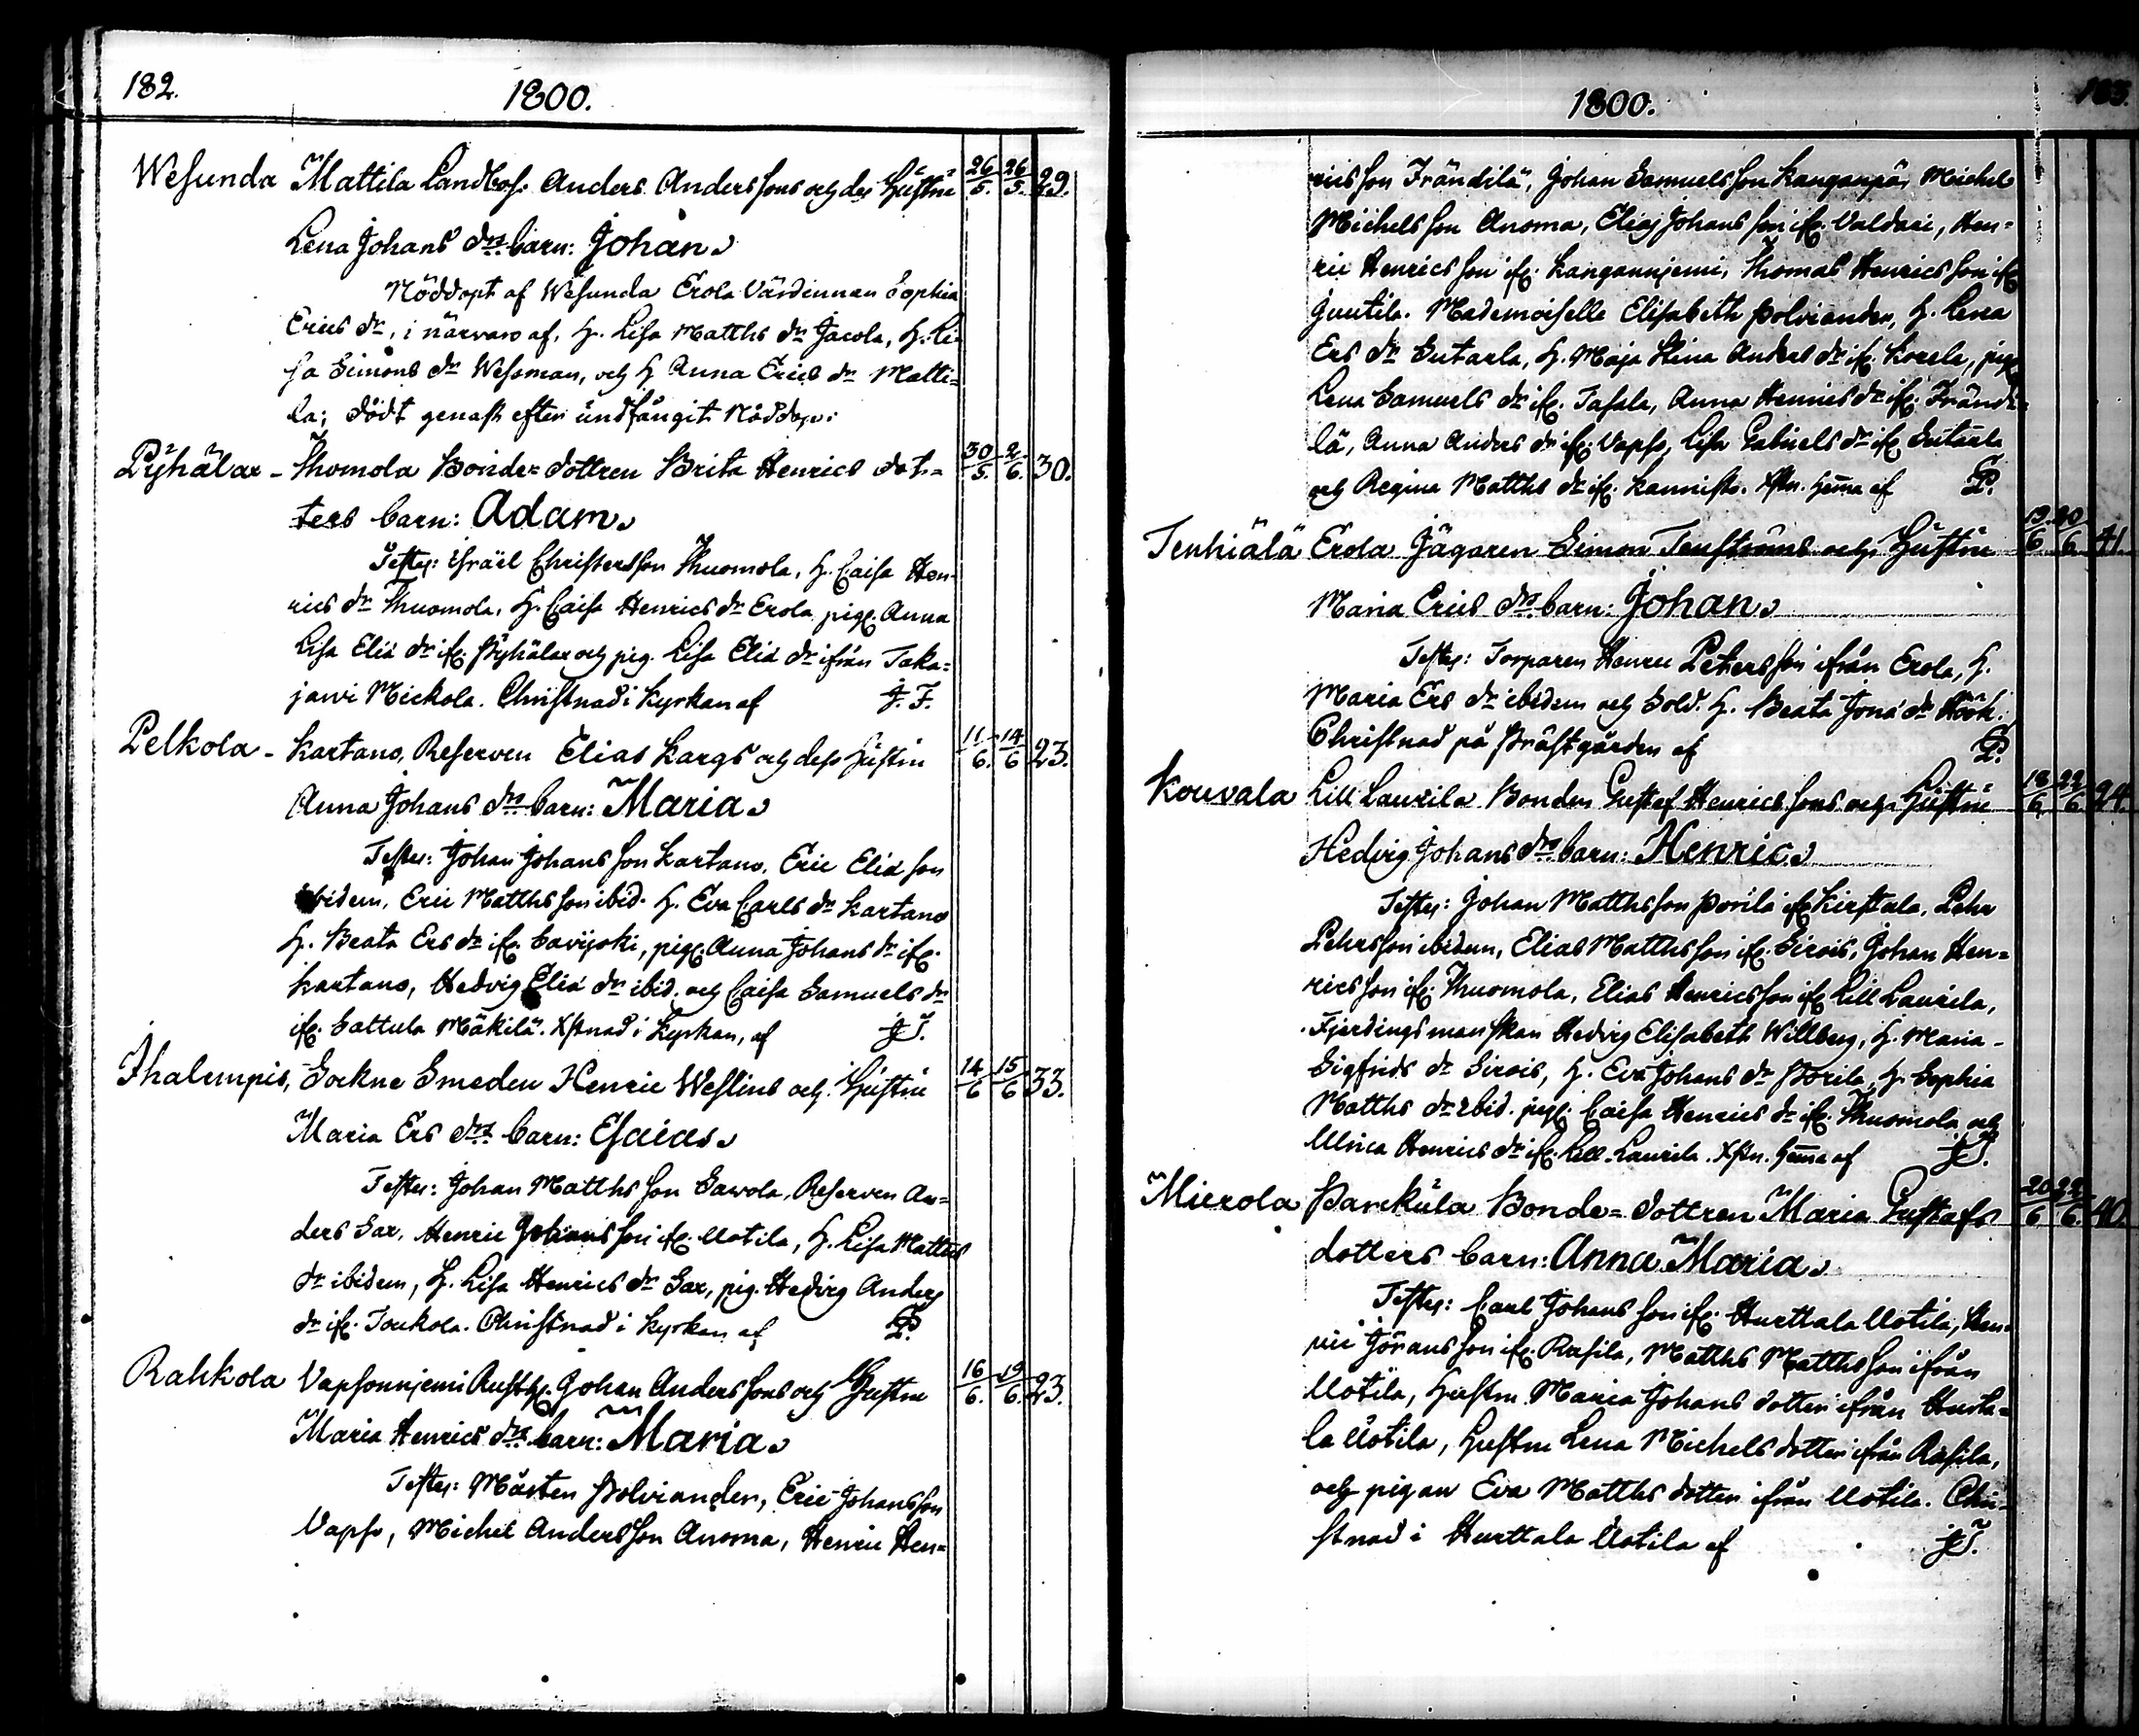 182.
1800.
Wesunda Mattila Landbos: Anders Anderssons och des Hustru 26/5. 26/5. 29.
Lena Johans drs barn: Johan.
Nöddöpt af Wesunda Erola Värdinnan Sophia
Erics dr, i närvaro af, H. Lisa Matths dr Jacola, H. Li-
sa Simons dr Wesoman, och H Anna Erics dr Matti=
la; dödt genast efter undfångit Nöddop.
Pyhälax - Thomola Bonde=dottren Brita Henrics dot= 30/5. 2/6. 30.
ters barn: Adam.
Testes: Israël Christersson Thuomola, H. Caisa Hen-
rics dr Thuomola, H. Caisa Henrics dr Erola pig. Anna
Lisa Eliæ dr ifr. Pyhälax och pig. Lisa Eliæ dr ifrån Taka=
jarvi Mickola. Christnad i kyrkan af J. F.
Pelkola - Kartano, Reserven Elias Kargs och dess Hustru 11/6. 14/6 23.
Anna Johans drs barn: Maria.
Testes: Johan Johansson Kartano, Eric Eliæ son
ibidem, Eric Matthsson ibid. H. Eva Carls dr Kartano
H. Beata Ers dr ifr. Savijoki, pig. Anna Johans dr ifr.
Kartano, Hedvig Eliæ dr ibid. och Caisa Samuels dr
ifr. Sattula Mäkilä. Xstnad i kyrkan, af
Ihalempis, Sockne Smeden Henric Weslins och Hustru 14/6 15/6 33.
Maria Ers drs barn: Esaias.
Testes: Johan Matthsson Sawola, Reserven An=
ders Sax, Henric Johansson ifr. Uotila, H. Lisa Matths
dr ibidem, H. Lisa Henrics dr Sax, pig. Hedvig Anders
dr ifr. Toukola. Christnad i kyrkan af
Rahkola Vapsonnjemi Rusth. Johan Anderssons och Hustru 16/6. 19/6. 23.
Maria Henrics drs barn: Maria.
Testes: Mårten Polviander, Eric Johansson
Vapso, Michel Andersson Anoma, Henric Hen=
1800.
183.
ricsson Frändilä, Johan Samuelsson Kanganpä, Michel
Michelsson Anoma, Elias Johansson ifr. Valdari, Hen=
ric Henricsson ifr. Kangannjemi, Thomas Henricsson ifr
Juutila. Mademoiselle Elisabeth Polviander, H. Lena
Ers dr Sutarla, H. Maja Stina Anders dr ifr. Korela, pig.
Lena Samuels dr ifr. Tasala, Anna Henrics dr ifr. Frändi=
lä, Anna Anders dr ifr. Vapso, Lisa Gabriels dr ifr Sutarla
och Regina Matths dr ifr. Kannisto. Xstn. hema af
Tenhiälä Erola Jägaren Simon Tenströms och Hustru 19/6 20/6. 41.
Maria Erics drs barn: Johan.
Testes: Torparen Henric Petersson ifrån Erola, H.
Maria Ers dr ibidem och Sold. H. Beata Jonæ dr Höök.
Christnad på Prästgården af
Kouvala Lill Laurila Bonden Gustaf Henricssons och Hustru 18/6 22/6 24.
Hedvig Johans drs barn: Henric.
Testes: Johan Matthsson Porila ifr Kirstula, Pehr
Pehrsson ibidem, Elias Matthsson ifr. Sirois, Johan Hen=
ricsson ifr. Thuomola, Elias Henricsson ifr Lill Laurila,
Fjerdingsmanskan Hedvig Elisabeth Willberg, H. Maria
Sigfrids dr Sirois, H. Eva Johans dr Porila, H. Sophia
Matths dr ibid. pig. Caisa Henrics dr ifr. Thuomola och
Ulrica Henrics dr ifr. Lill-Laurila. Xstn. hema af
Mierola Pareküla Bonde=dottren Maria Gustafs 20/6 22/6. 40.
dotters barn: Anna Maria.
Testes: Carl Johansson ifr. Hurttala Uotila, Hen=
ric Jöransson ifr. Rasila, Matths Matthsson ifrån
Uotila, Hustru Maria Johans dotter ifrån Hurta=
la Uotila, Hustru Lena Michels dotter ifrån Rasila,
och pigan Eva Matths dotter ifrån Uotila. Chri=
stnad i Hurttala Uotila af